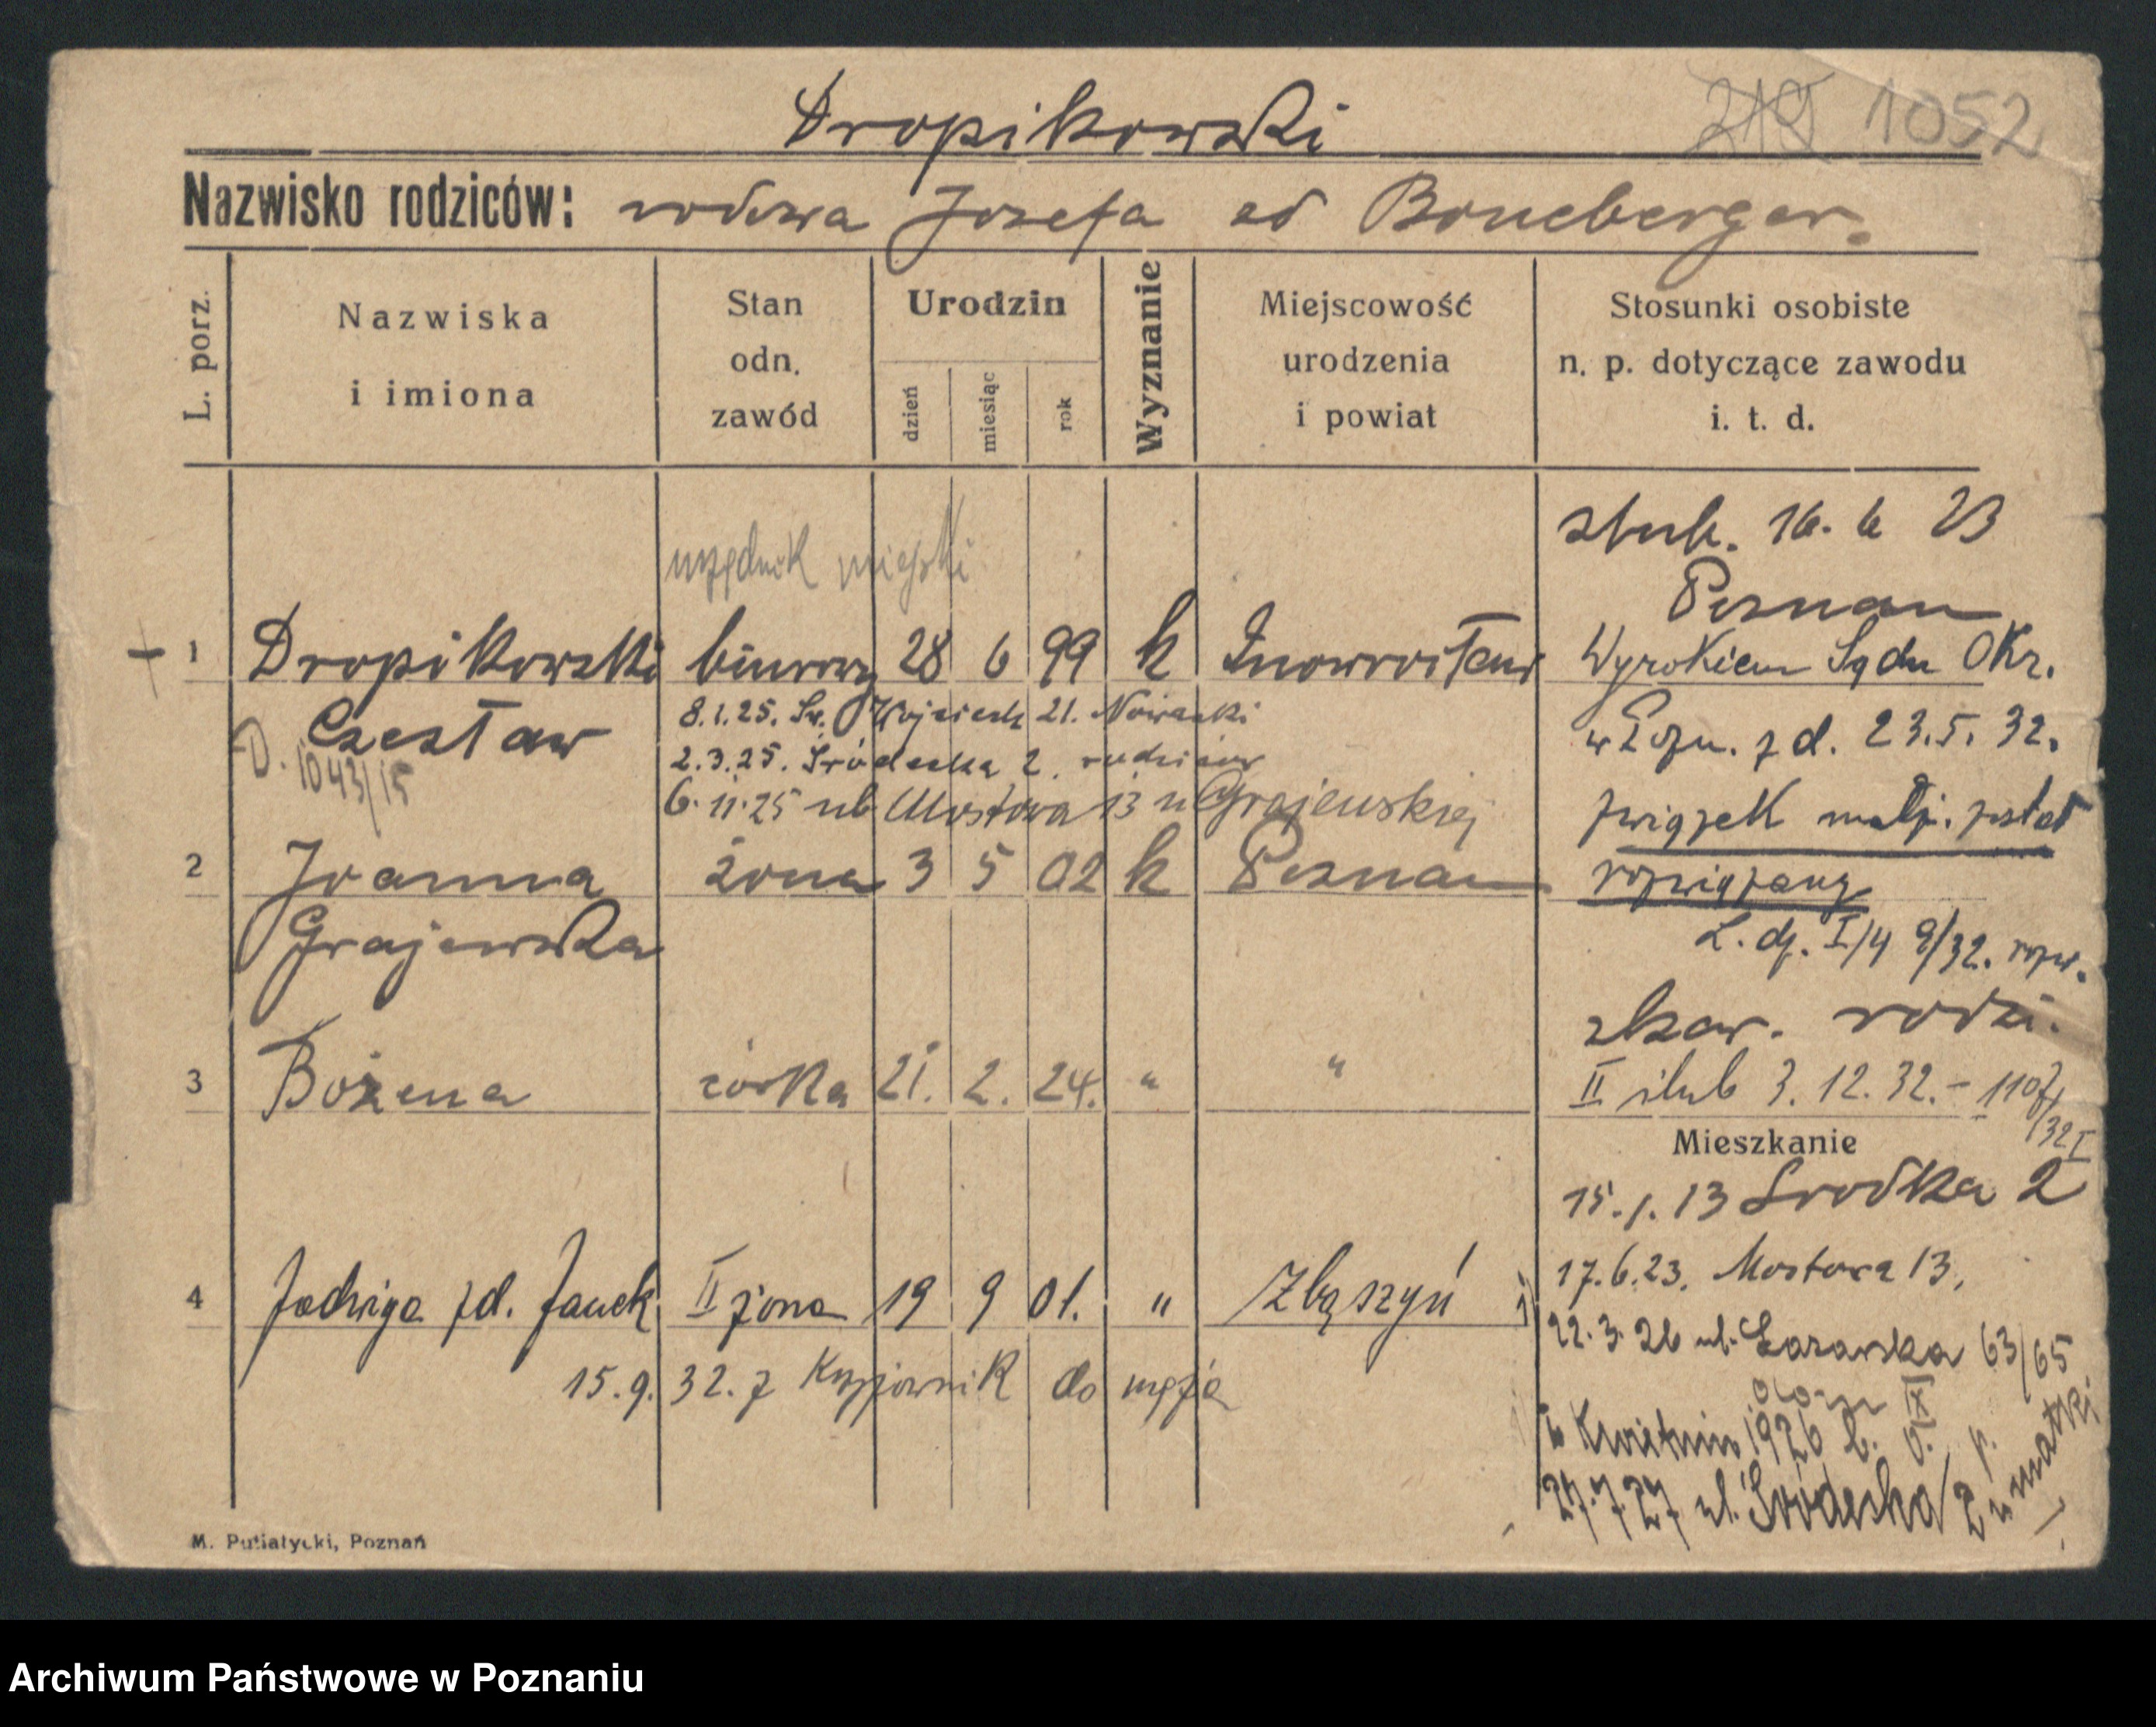 Dropikowski
219 1052
Nazwisko rodziców: wdowa Josefa zd Boneberger.
L. porz.
Nazwiska i imiona
Stan odn. zawód
Urodzin
dzień miesiąc rok
Wyznanie
Miejscowość urodzenia i powiat
Stosunki osobiste n. p. dotyczące zawodu i. t. d.
urzędnik miejski
ślub. 16. 6 23
Poznan
1 Dropikowski biurowy 28 6 99 k Inowrocław
Czesław
D. 1043/15
8.1.25. Św. Wojciech 21. Nowacki
2.3.25. Śródecka 2. rodziców
6.11.25 ul Mostowa 13 u Grajewskiej
Wyrokiem Sądu Okr.
w Pozn. z d. 23.5.32.
związek małż. został
rozwiązany
L. dz. I/4 9/32. rozw.
2 Joanna żona 3 5 02 k Poznan
Grajewska
rodzi.
3 Bożena córka 21. 2. 24. " "
II ślub 3. 12. 32. – 1107/32 I
Mieszkanie
15. 1. 13 Srodka 2
17.6.23. Mostowa 13.
4 Jadwiga zd. Janek II żona 19 9 01. " Zbąszyń
15.9.32. z Krzyżownik do męża
22.3.26 ul. 63/65
w Kwietniu 1926
27.7.27 ul. Śródecka 2 u matki
M. Putiatycki, Poznań
Archiwum Państwowe w Poznaniu